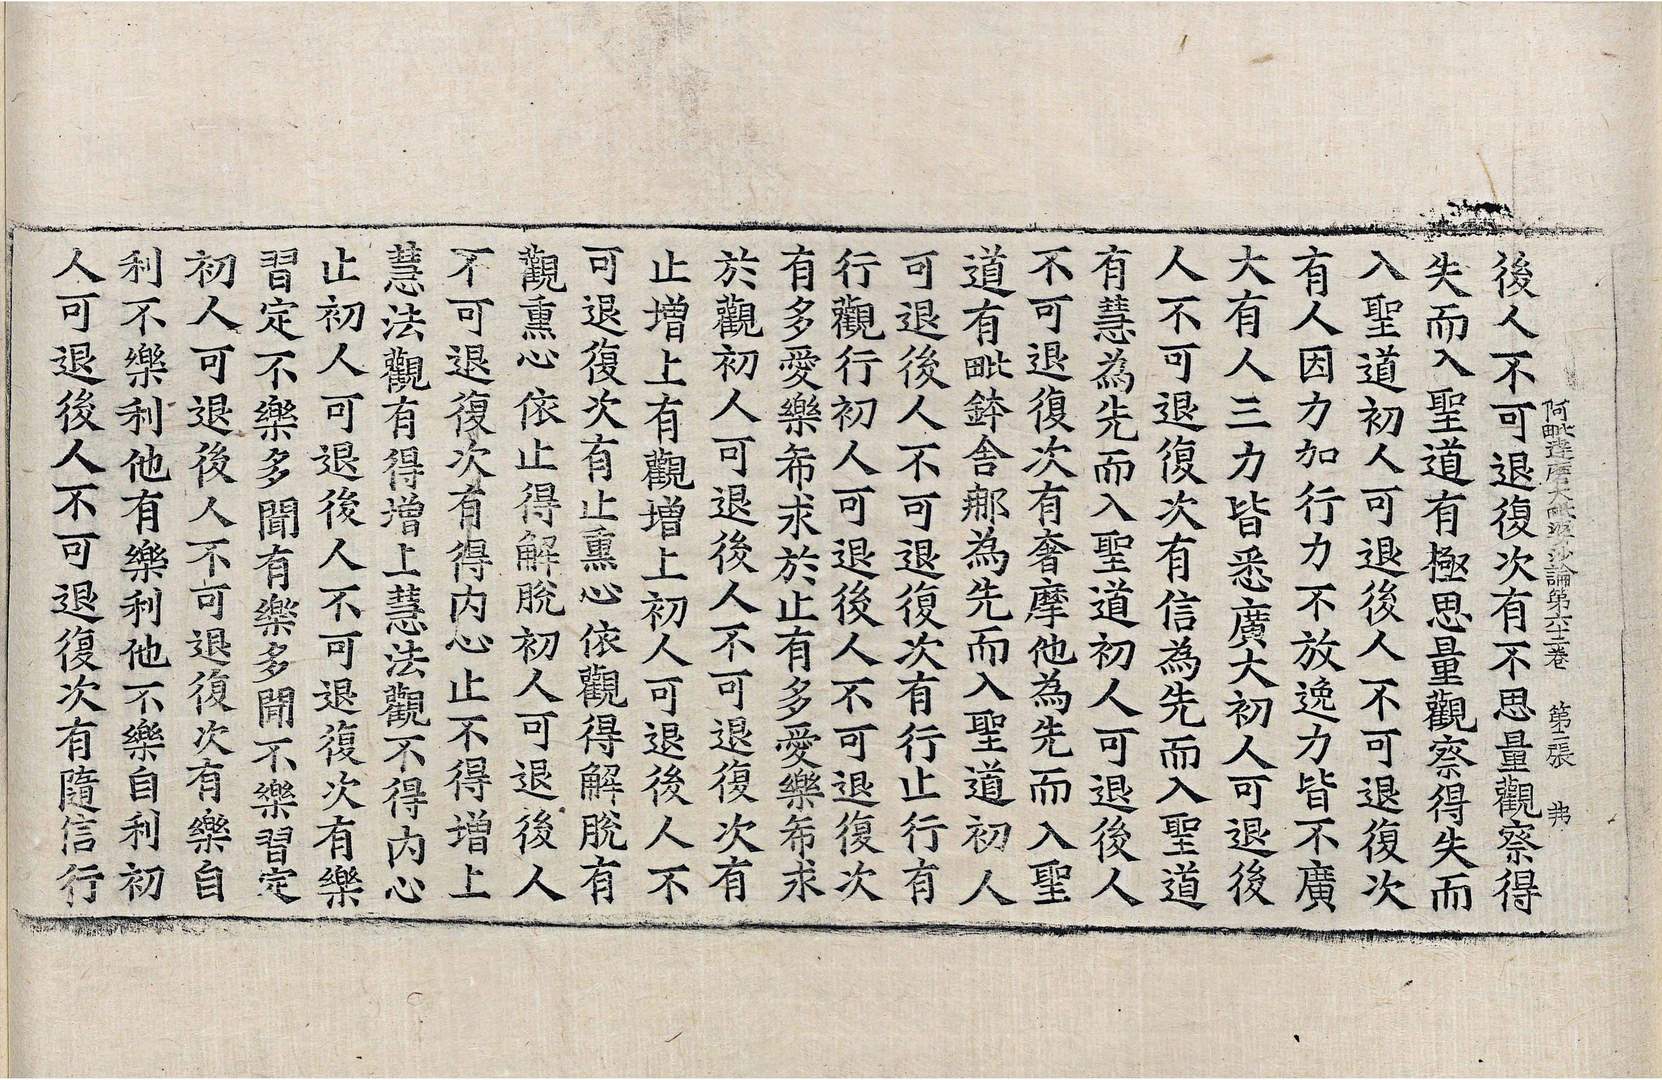 阿毗達磨大毗婆沙論第六十二卷 第二張 弗
後人不可退復次有不思量觀察得
失而入聖道有極思量觀察得失而
入聖道初人可退後人不可退復次
有人因力加行力不放逸力皆不廣
大有人三力皆悉廣大初人可退後
人不可退復次有信為先而入聖道
有慧為先而入聖道初人可退後人
不可退復次有奢摩他為先而入聖
道有毗鉢舍那為先而入聖道初人
可退後人不可退復次有行止行有
行觀行初人可退後人不可退復次
有多愛樂希求於止有多愛樂希求
於觀初人可退後人不可退復次有
止增上有觀增上初人可退後人不
可退復次有止熏心依觀得解脫有
觀熏心依止得解脫初人可退後人
不可退復次有得内心止不得增上
慧法觀有得增上慧法觀不得内心
止初人可退後人不可退復次有樂
習定不樂多聞有樂多聞不樂習定
初人可退後人不可退復次有樂自
利不樂利他有樂利他不樂自利初
人可退後人不可退復次有隨信行